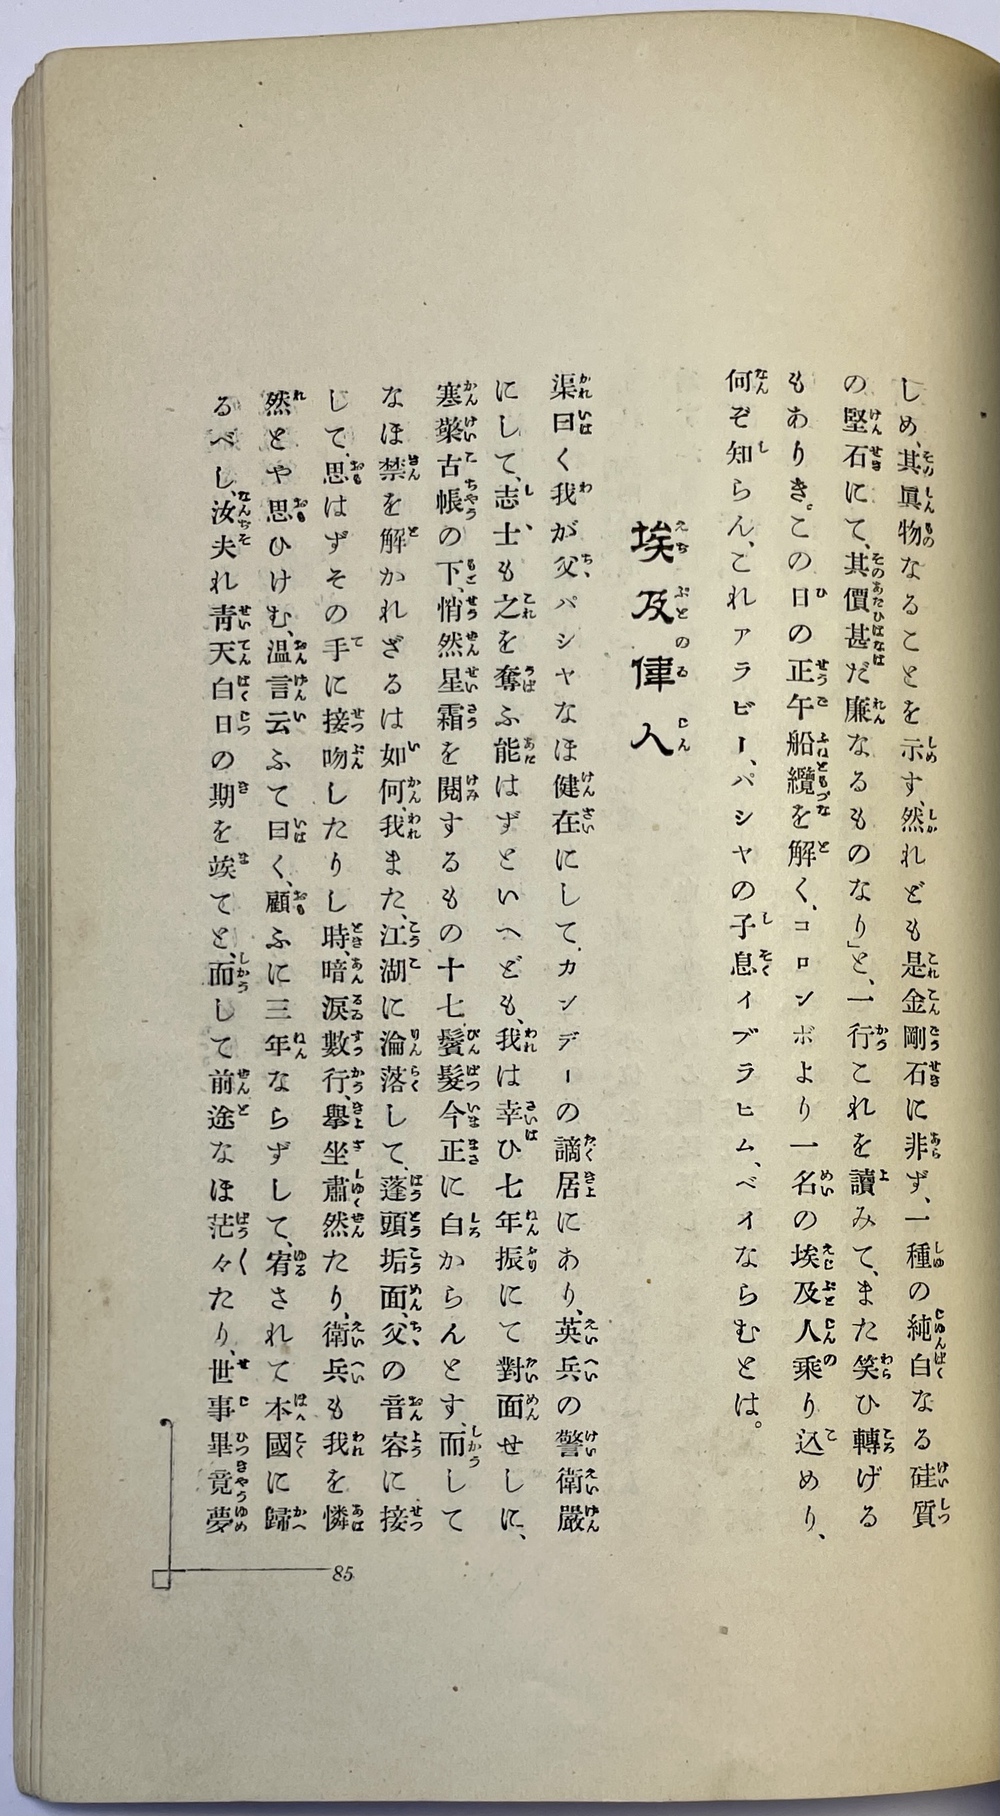 しめ、其眞物なることを示す、然れども是金剛石に非ず、一種の純白なる硅質
の堅石にて、其價甚だ廉なるものなり」と、一行これを讀みて、また笑ひ轉げる
もありき。この日の正午船纜を解く、コロンボより一名の埃及人乘り込めり、
何ぞ知らん、これアラビー、パシヤの子息イブラヒム、ベイならむとは。
埃及偉人
渠曰く我が父パシヤなほ健在にして、カンデーの謫居にあり、英兵の警衛嚴
にして、志士も之を奪ふ能はずといへども、我は幸ひ七年振にて對面せしに、
寒檠古帳の下、悄然星霜を閲するもの十七、鬢髮今正に白からんとす、而して
なほ禁を解かれざるは如何、我また、江湖に淪落して、蓬頭垢面、父の音容に接
して、思はずその手に接吻したりし時、暗淚數行、擧坐肅然たり、衛兵も我を憐
然とや思ひけむ、温言云ふて曰く、顧ふに三年ならずして、宥されて本國に歸
るべし、汝夫れ靑天白日の期を竢てと、而して前途なほ茫々たり、世事畢竟夢
85